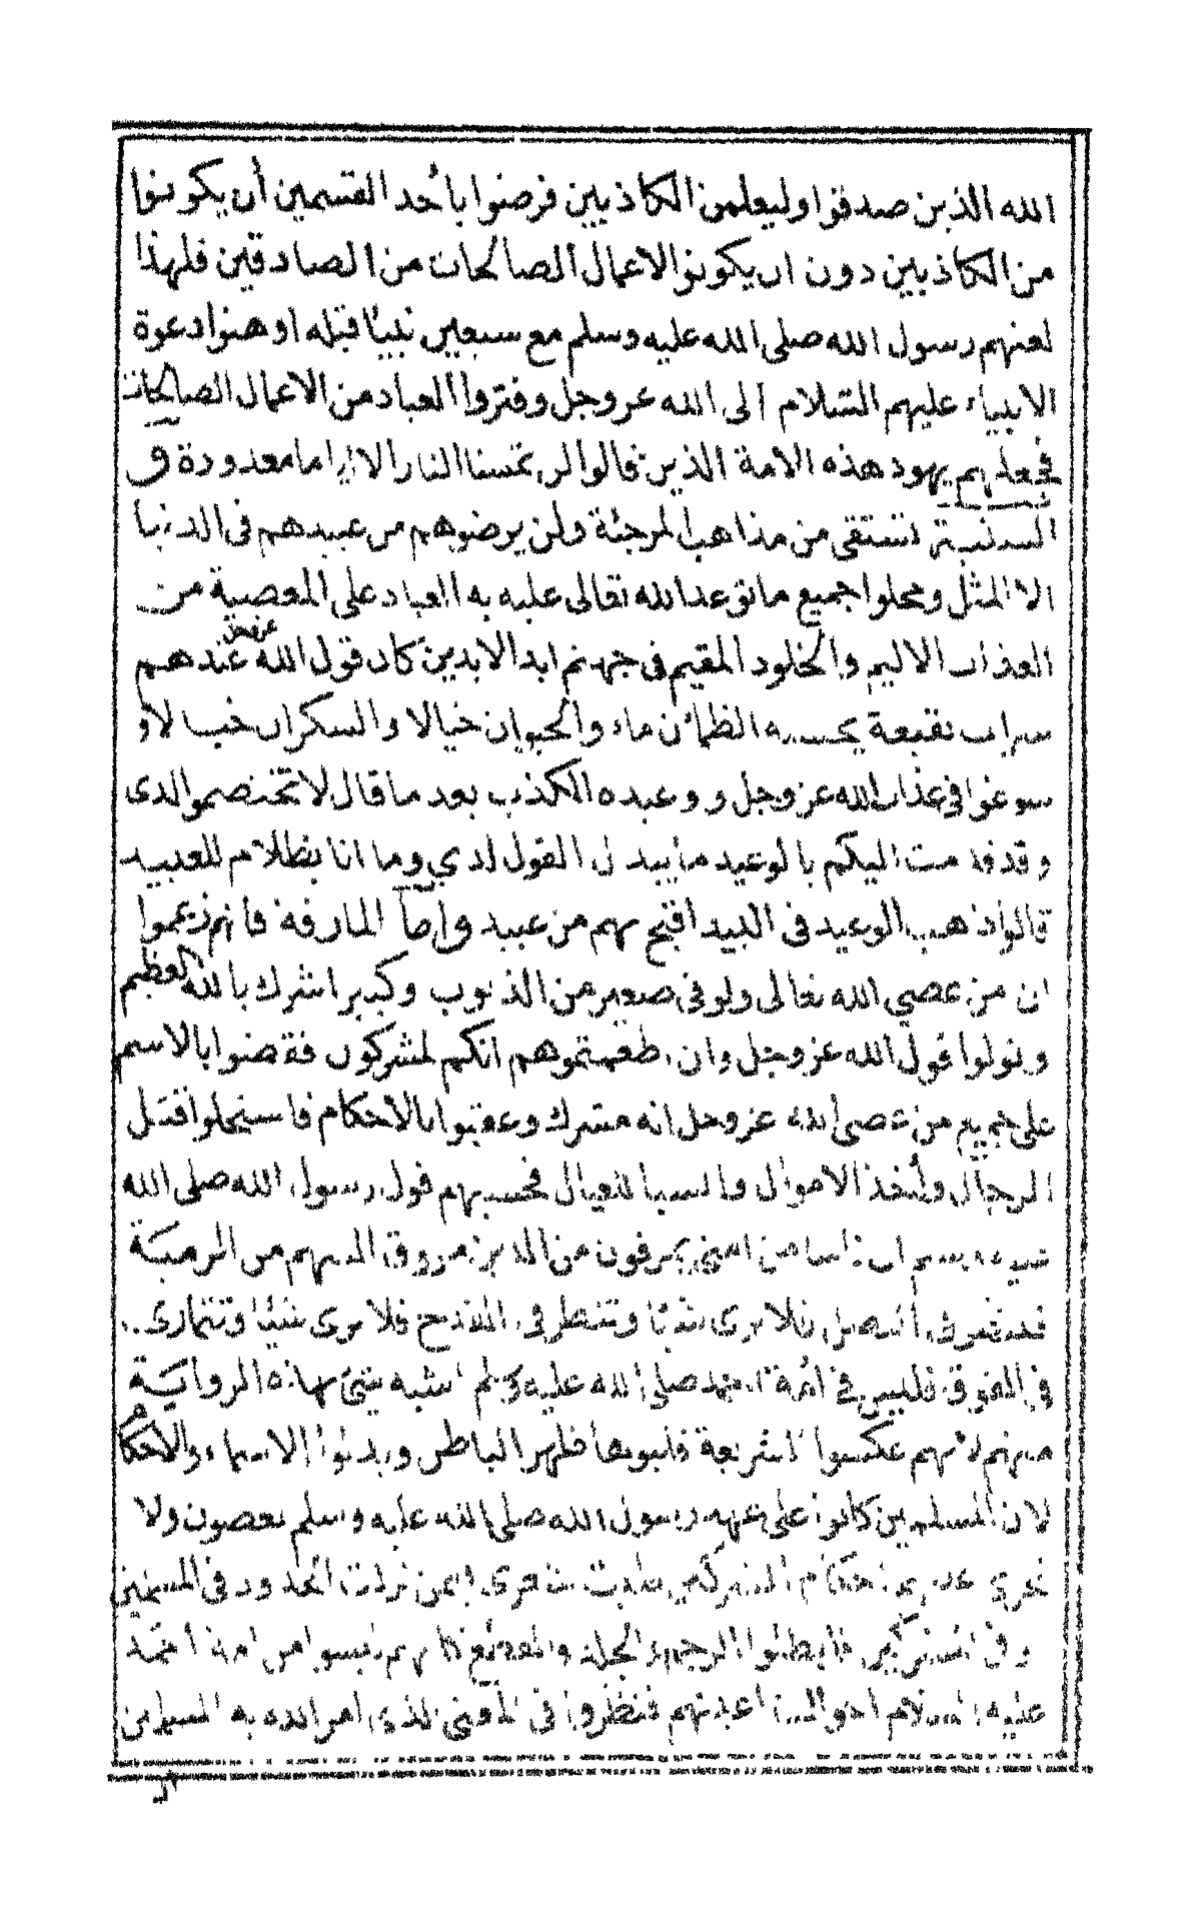 الله الذين صدقوا وليعلمن الكاذبين فرضوا بأحد القسمين أن يكونوا
من الكاذبين دون ان يكونوا لاعمال الصالحات من الصادقين فلهذا
لعنهم رسول الله صلى الله عليه وسلم مع سبعين نبيا قبله اوهنوا دعوة
الانبياء عليهم السلام الى الله عز وجل وفتروا العباد من الاعمال الصالحات
فجعلهم يهود هذه الامة الذين قالوا لن تمسنا النار الا اياما معدودة و
السنية تستقى من مذاهب المرجئة ولن يرضوهم من عبيدهم فى الدنيا
الا المثل ومحلوا جميع ما توعد الله تعالى عليه به العباد على المعصية من
العذاب الاليم والخلود المقيم فى جهنم ابد الابدين كان قول الله عز وجل عندهم
سراب بقيعة يحسبه الظمآن ماء والحيوان خيالا والسكران خبالا و
سوغوا فى عذاب الله عز وجل ووعيده الكذب بعد ما قال لا تختصموا لدى
وقد قدمت اليكم بالوعيد ما يبدل القول لدي وما انا بظلام للعبيد
قالوا ذهب الوعيد فى البيد اقبح بهم من عبيد وأما المارقة فانهم زعموا
ان من عصي الله تعالى ولو فى صغير من الذنوب وكبير اشرك بالله العظيم
وتولوا قول الله عز وجل وان اطعمتموهم انكم لمشركون فقضوا بالاسم
على جميع من عصى الله عز وجل انه مشرك وعقبوا بالاحكام فاستحلوا قتل
الرجال وأخذ الاموال والسبا للعيال فحسبهم قول رسول الله صلى الله
عليه وسلم ان ناسا من امتى يمرقون من الدين مروق السهم من الرمية
فتنظر فى النصل فلا ترى شيئا وتنظر فى القدح فلا ترى شيئا وتتمارى
فى الفوق فليس فى امة محمد صلى الله عليه وسلم اشبه شئ بهذه الرواية
منهم لانهم عكسوا الشريعة قلبوها ظهرا لباطن وبدلوا الاسماء والاحكام
لان المسلمين كانوا على عهد رسول الله صلى الله عليه وسلم يعصون ولا
تجرى عليهم احكام المشركين فى من نزلت الحدود فى المسلمين
وفى المشركين فابطلوا الرجم والجلد والقطع كانهم ليسوا من امة محمد
عليه السلام فنظروا فى المعنى الذى امر الله به المسلمين